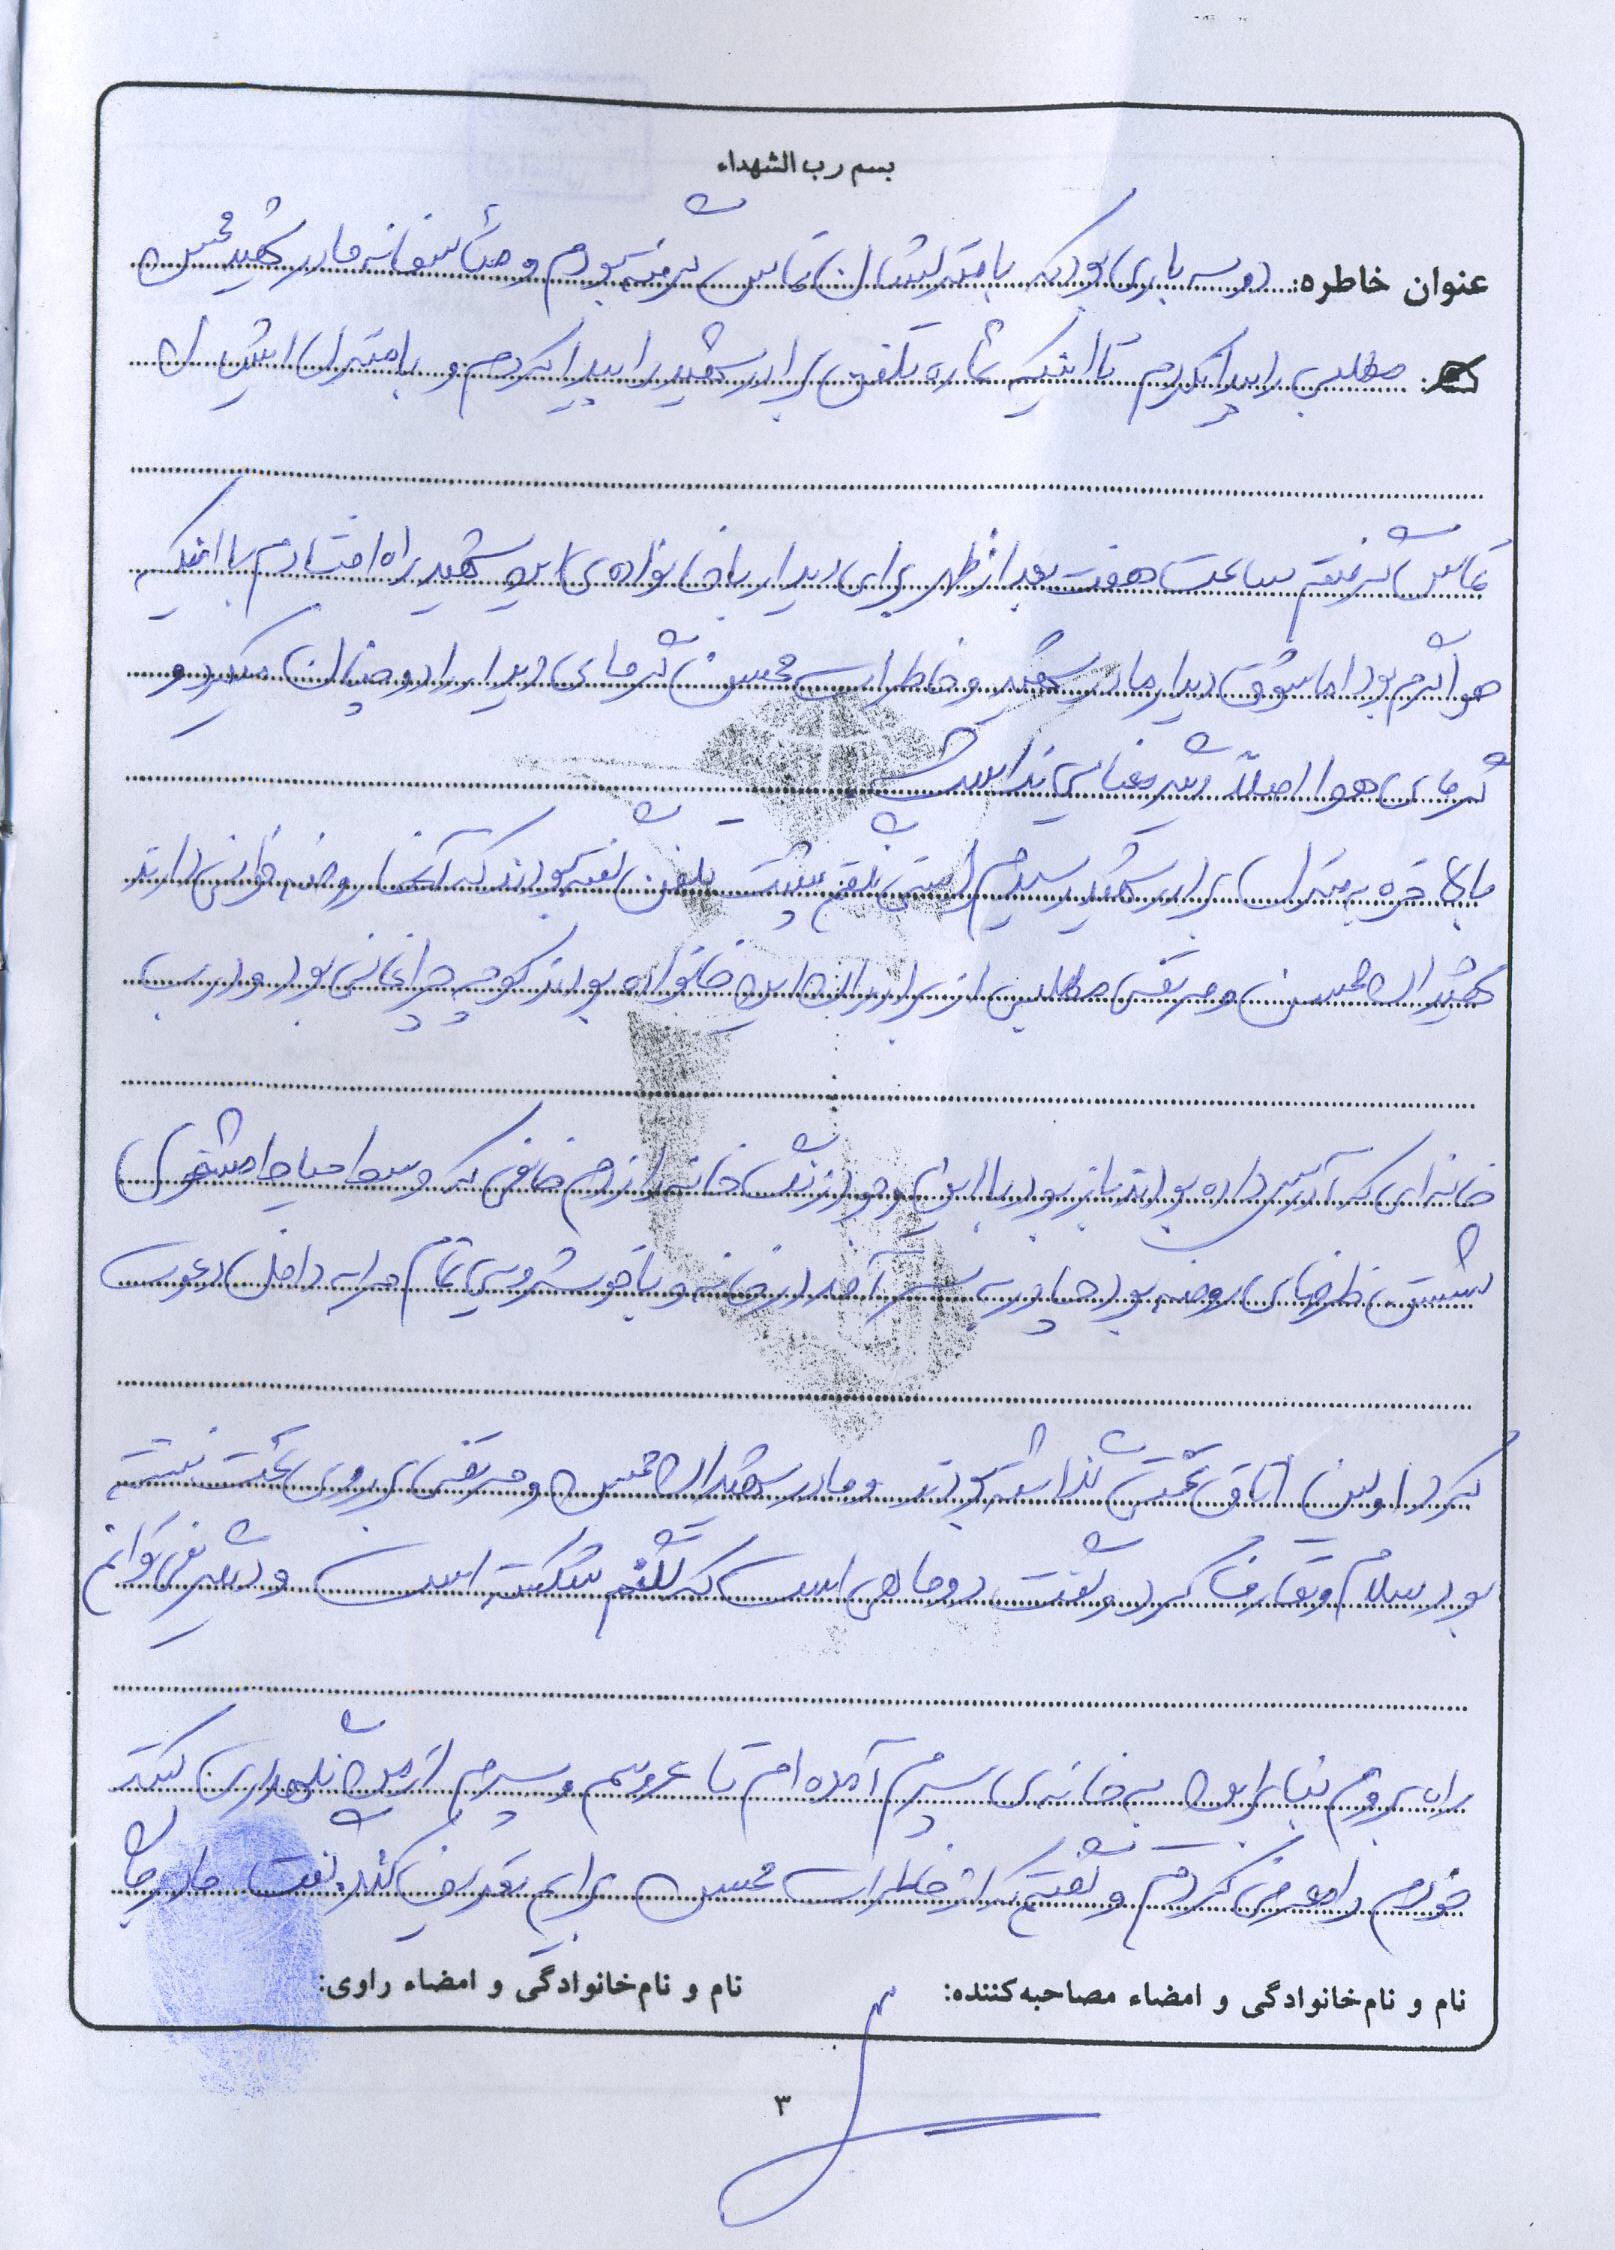 بسم رب الشهداء
عنوان خاطره: دو سه باری بود که با منزلشان تماس گرفته بودم و متأسفانه مادر شهید محسن
مطلبی را پیدا نکردم تا اینکه شماره تلفن برادر شهید را پیدا کردم و با منزل ایشان
تماس گرفتم ساعت هفت بعد از ظهر برای دیدار با خانواده‌ی این شهید راه افتادم با اینکه
هوا گرم بود اما شوق دیدار مادر شهید و خاطرات محسن گرمای دیدار را دو چندان میکرد و
گرمای هوا اصلاً دیگر معنایی نداشت.
بالاخره به منزل برادر شهید رسیدم راستی پشت تلفن گفته بودند که آنجا روضه خوانی دارند
شهیدان محسن و مرتضی مطلبی از برادران این خانواده بودند کوچه چراغانی بود و درب
خانه‌ای که آدرس داده بودند باز بود با این وجود زنگ خانه را زدم خانمی که وسط حیاط مشغول
شستن ظرفهای روضه بود چادر به سر آمد در خانه و با خوشرویی تمام مرا به داخل دعوت
کرد اولین اتاق تختی گذاشته بودند و مادر شهیدان محسن و مرتضی بر روی تخت نشسته
بود سلام و تعارف کرد و گفت دو ماهی است که لگنم شکسته است و دیگر نمی‌توانم
راه بروم بنابراین به خانه‌ی پسرم آمده‌ام تا عروسم و پسرم از من نگهداری کنند
خودم را معرفی کردم و گفتم که از خاطرات محسن برایم تعریف کند گفت مادر جان
نام و نام‌خانوادگی و امضاء مصاحبه‌کننده:
نام و نام‌خانوادگی و امضاء راوی:
۳